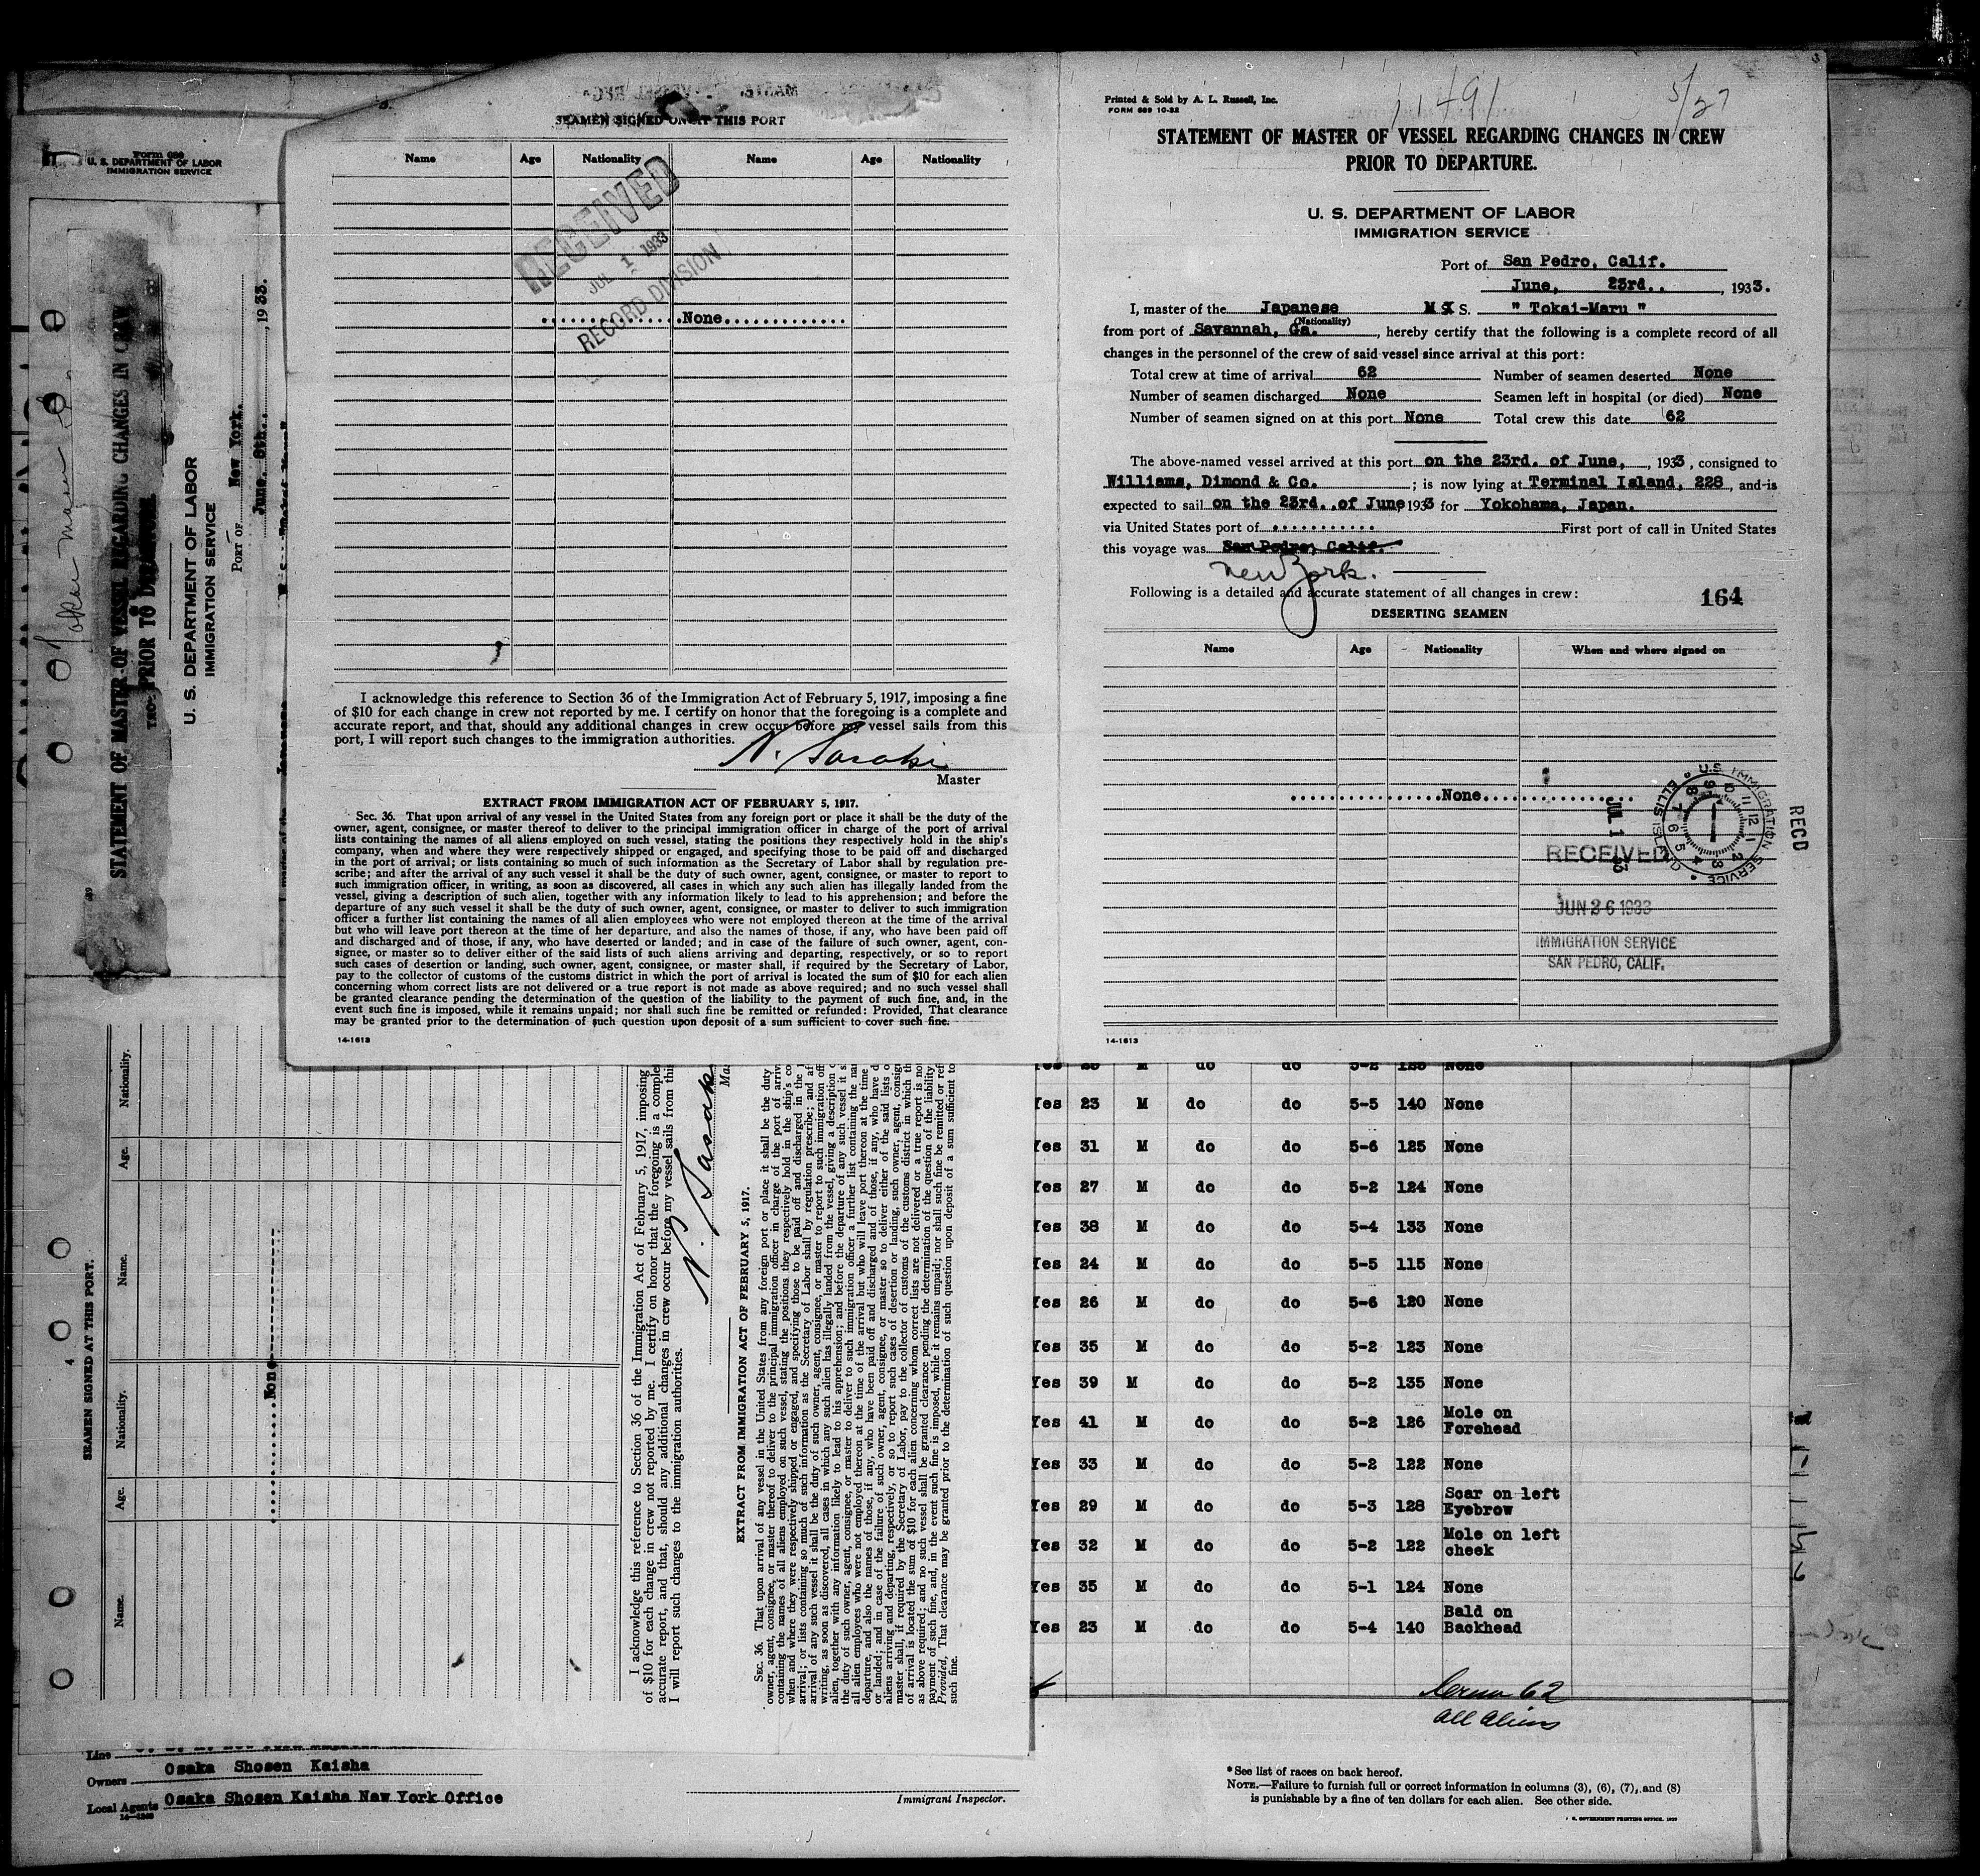 SEAMEN SIGNED ON AT THIS PORT
Name Age Nationality Name Age Nationality
RECEIVED
JUL 1 1933
RECORD DIVISION
None
I acknowledge this reference to Section 36 of the Immigration Act of February 5, 1917, imposing a fine
of $10 for each change in crew not reported by me. I certify on honor that the foregoing is a complete and
accurate report, and that, should any additional changes in crew occur before my vessel sails from this
port, I will report such changes to the immigration authorities.
N. Sasaki
Master
EXTRACT FROM IMMIGRATION ACT OF FEBRUARY 5, 1917.
Sec. 36. That upon arrival of any vessel in the United States from any foreign port or place it shall be the duty of the
owner, agent, consignee, or master thereof to deliver to the principal immigration officer in charge of the port of arrival
lists containing the names of all aliens employed on such vessel, stating the positions they respectively hold in the ship's
company, when and where they were respectively shipped or engaged, and specifying those to be paid off and discharged
in the port of arrival; or lists containing so much of such information as the Secretary of Labor shall by regulation pre-
scribe; and after the arrival of any such vessel it shall be the duty of such owner, agent, consignee, or master to report to
such immigration officer, in writing, as soon as discovered, all cases in which any such alien has illegally landed from the
vessel, giving a description of such alien, together with any information likely to lead to his apprehension; and before the
departure of any such vessel it shall be the duty of such owner, agent, consignee, or master to deliver to such immigration
officer a further list containing the names of all alien employees who were not employed thereon at the time of the arrival
but who will leave port thereon at the time of her departure, and also the names of those, if any, who have been paid off
and discharged and of those, if any, who have deserted or landed; and in case of the failure of such owner, agent, con-
signee, or master so to deliver either of the said lists of such aliens arriving and departing, respectively, or so to report
such cases of desertion or landing, such owner, agent, consignee, or master shall, if required by the Secretary of Labor,
pay to the collector of customs of the customs district in which the port of arrival is located the sum of $10 for each alien
concerning whom correct lists are not delivered or a true report is not made as above required; and no such vessel shall
be granted clearance pending the determination of the question of the liability to the payment of such fine, and, in the
event such fine is imposed, while it remains unpaid; nor shall such fine be remitted or refunded: Provided, That clearance
may be granted prior to the determination of such question upon deposit of a sum sufficient to cover such fine.
14-1613
Printed & Sold by A. L. Russell, Inc.
FORM 689 10-32
1491
5/27
STATEMENT OF MASTER OF VESSEL REGARDING CHANGES IN CREW
PRIOR TO DEPARTURE.
U. S. DEPARTMENT OF LABOR
IMMIGRATION SERVICE
Port of San Pedro, Calif.
June, 23rd., 1933.
I, master of the Japanese M.S. " Tokai-Maru "
(Nationality)
from port of Savannah, Ga., hereby certify that the following is a complete record of all
changes in the personnel of the crew of said vessel since arrival at this port:
Total crew at time of arrival 62 Number of seamen deserted None
Number of seamen discharged None Seamen left in hospital (or died) None
Number of seamen signed on at this port None Total crew this date 62
The above-named vessel arrived at this port on the 23rd. of June, , 1933, consigned to
Williams, Dimond & Co. ; is now lying at Terminal Island, 228, and is
expected to sail on the 23rd. of June 1933 for Yokohama, Japan.
via United States port of First port of call in United States
this voyage was San Pedro, Calif.
New York.
Following is a detailed and accurate statement of all changes in crew: 164
DESERTING SEAMEN
Name Age Nationality When and where signed on
None
RECD
U.S. IMMIGRATION SERVICE ELLIS ISLAND
JUL 1 33
RECEIVED
JUN 26 1933
IMMIGRATION SERVICE
SAN PEDRO, CALIF.
14-1613
Form 689
U. S. DEPARTMENT OF LABOR
IMMIGRATION SERVICE
Tokai Maru
STATEMENT OF MASTER OF VESSEL REGARDING CHANGES IN CREW
PRIOR TO DEPARTURE
U. S. DEPARTMENT OF LABOR
IMMIGRATION SERVICE
PORT OF New York.
June. 8th., 1933.
SEAMEN SIGNED AT THIS PORT.
Name. Age. Nationality. Name. Age. Nationality.
None
4
I acknowledge this reference to Section 36 of the Immigration Act of February 5, 1917, imposing
of $10 for each change in crew not reported by me. I certify on honor that the foregoing is a comple
accurate report, and that, should any additional changes in crew occur before my vessel sails from this
I will report such changes to the immigration authorities.
N. Sasak
Ma
EXTRACT FROM IMMIGRATION ACT OF FEBRUARY 5, 1917.
SEC. 36. That upon arrival of any vessel in the United States from any foreign port or place it shall be the duty
Yes 23 M do do 5-5 140 None
Yes 31 M do do 5-6 125 None
Yes 27 M do do 5-2 124 None
Yes 38 M do do 5-4 133 None
Yes 24 M do do 5-5 115 None
Yes 26 M do do 5-6 120 None
Yes 35 M do do 5-2 123 None
Yes 39 M do do 5-2 135 None
Yes 41 M do do 5-2 126 Mole on Forehead
Yes 33 M do do 5-2 122 None
Yes 29 M do do 5-3 128 Scar on left Eyebrow
Yes 32 M do do 5-2 122 Mole on left cheek
Yes 35 M do do 5-1 124 None
Yes 23 M do do 5-4 140 Bald on Backhead
62
All Aliens
Line
Owners Osaka Shosen Kaisha
Local Agents Osaka Shosen Kaisha New York Office
Immigrant Inspector.
* See list of races on back hereof.
NOTE.—Failure to furnish full or correct information in columns (3), (6), (7), and (8)
is punishable by a fine of ten dollars for each alien. See other side.